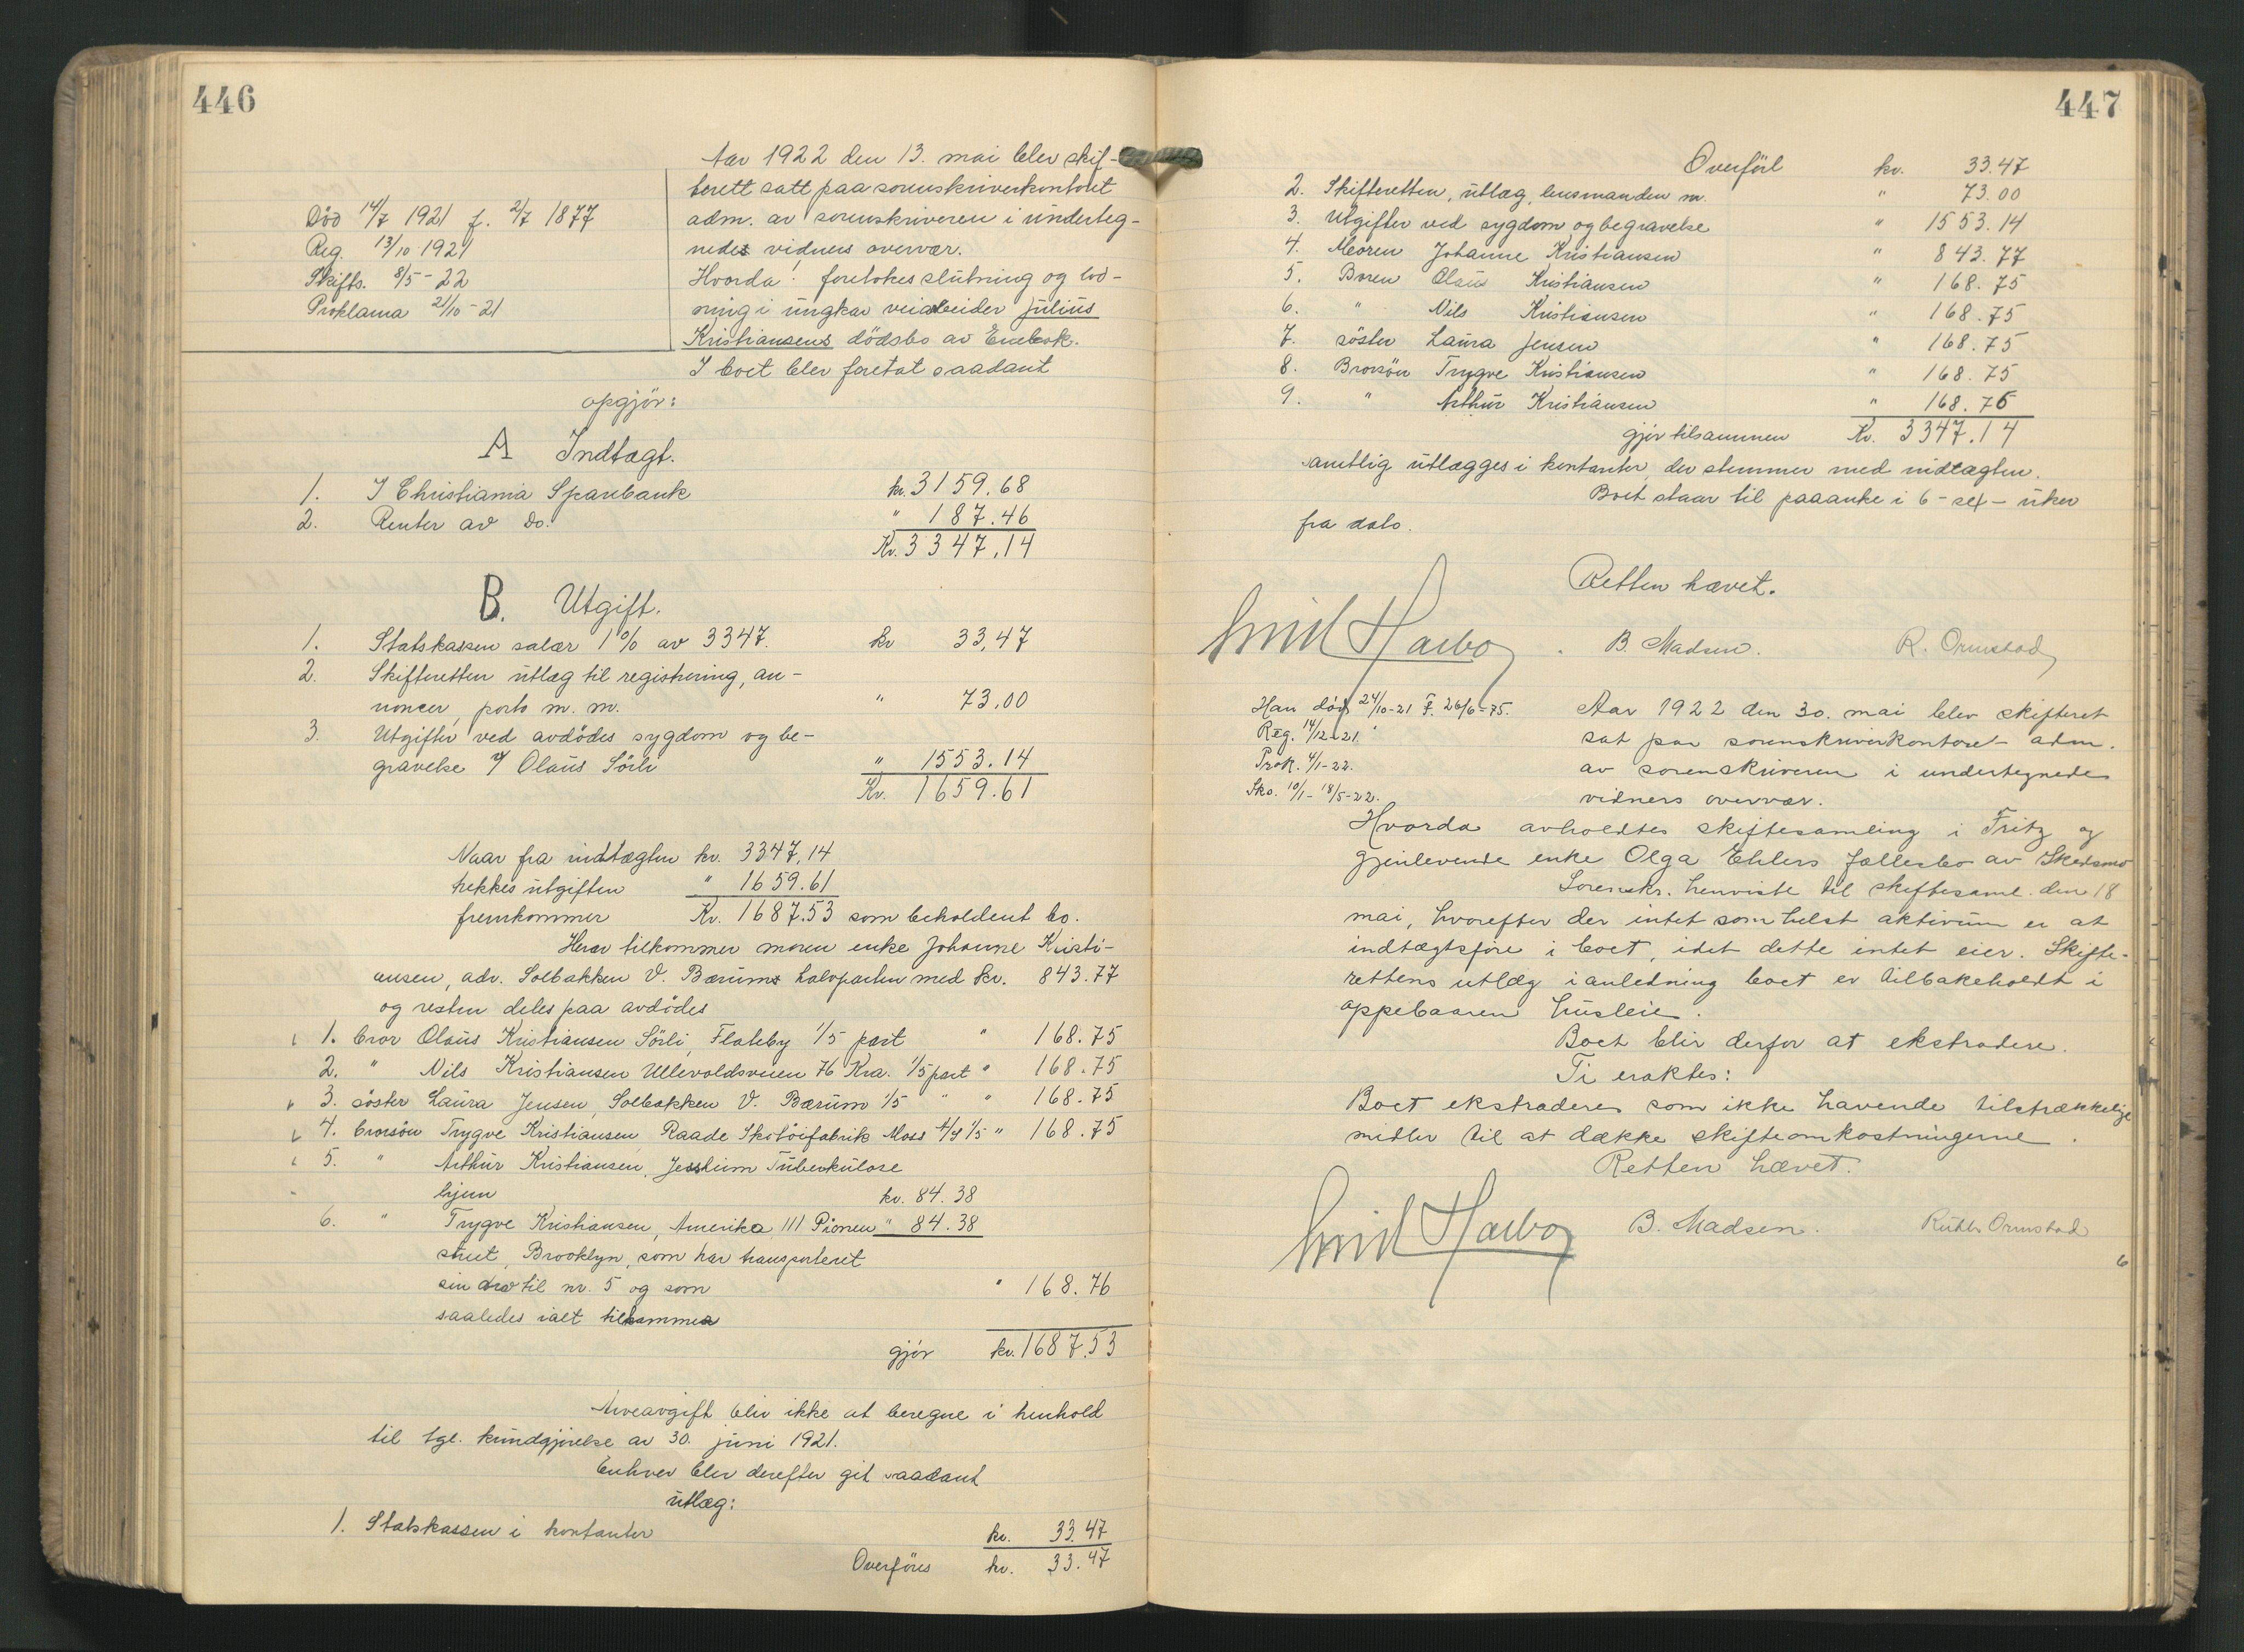 446
Død 14/7 1921 f. 2/7 1877
Reg. 13/10 1921
Skifts. 8/5-22
Proklama 21/10-21
Aar 1922 den 13. mai blev skif-
terett satt paa sorenskriverkontoret
adm. av sorenskriveren i underteg-
nedes vidners overvær.
Hvorda! foretokes slutning og lod-
ning i ungkar veiarbeider Julius
Kristiansens dödsbo av Enebak.
I boet blev foretat saadant
opgjör:
A Indtægt.
1. I Christiania Sparebank kr. 3159.68
2. Renter av do. " 187.46
Kr. 3347,14
B. Utgift.
1. Statskassen salær 1% av 3347. kr 33,47
2. Skifteretten utlæg til registrering, an-
noncer, porto m. m. " 73,00
3. Utgifter ved avdödes sygdom og be-
gravelse v/ Olaus Sörli " 1553.14
Kr. 1659.61
Naar fra indtægten kr. 3347,14
trekkes utgiften " 1659.61
fremkommer Kr. 1687.53 som beholdent bo.
Herav tilkommer moren enke Johanne Kristi-
ansen, adr. Solbakken V. Bærums halvparten med kr. 843.77
og resten deles paa avdödes
1. bror Olaus Kristiansen Sörli, Flateby 1/5 part " 168.75
2. " Nils Kristiansen Ullevoldsveien 76 Kra. 1/5 part " 168.75
3. söster Laura Jensen, Solbakken V. Bærum 1/5 " " 168.75
4. brorsön Trygve Kristiansen, Raade Skotöifabrik Moss A/S 1/5 " 168.75
5. " Arthur Kristiansen, Jessheim Tuberkulose
hjem kr. 84.38
6. " Trygve Kristiansen, Amerika 111 Pioneer " 84.38
street, Brooklyn, som har transporteret
sin arv til nr. 5 og som " 168.76
saaledes ialt tilkommer
gjör kr. 1687.53
Arveavgift blir ikke at beregne i henhold
til kgl. kundgjörelse av 30. juni 1921.
Enhver blev derefter git saadant
utlæg:
1. Statskassen i kontanter kr. 33.47
Overföres kr. 33.47
447
Overfört kr. 33.47
2. Skifteretten, utlæg, lensmanden m. " 73.00
3. Utgifter ved sygdom og begravelse " 1553.14
4. Moren Johanne Kristiansen " 843.77
5. Broren Olaus Kristiansen " 168.75
6. " Nils Kristiansen " 168.75
7. söster Laura Jensen " 168.75
8. Brorsön Trygve Kristiansen " 168.75
9. " Arthur Kristiansen " 168.76
gjör tilsammen Kr. 3347.14
samtlig utlægges i kontanter, der stemmer med indtægten.
Boet staar til paaanke i 6 - sex - uker
fra dato.
Retten hævet.
Emil Harboe. B. Madsen. R. Ormstad
Han död 24/10-21 F. 26/6-75.
Reg. 14/12-21
Prok. 4/1-22.
Sko. 10/1 - 18/5-22.
Aar 1922 den 30. mai blev skifteret
sat paa sorenskriverkontoret adm.
av sorenskriveren i undertegnede
vidners overvær.
Hvorda avholdtes skiftesamling i Fritz og
gjenlevende enke Olga Ehlers fællesbo av Skedsmo
Sorenskr. henviste til skiftesaml. den 18
mai, hvorefter der intet som helst aktivum er at
indtægtsföre i boet, idet dette intet eier. Skifte-
rettens utlæg i anledning boet er tilbakeholdt i
oppebaaren husleie.
Boet blir derfor at ekstradere.
Ti eraktes:
Boet ekstraderes som ikke havende tilstrækkelige
midler til at dække skifteomkostningerne.
Retten hævet.
Emil Harboe B. Madsen. Ruth Ormstad
6